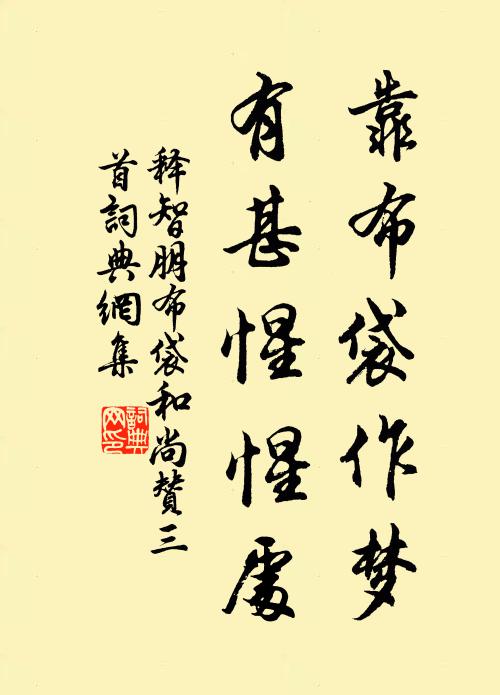 靠布袋作梦
有甚惺惺處
释智朋布袋和尚赞三
首詞典網集
詞典
网印